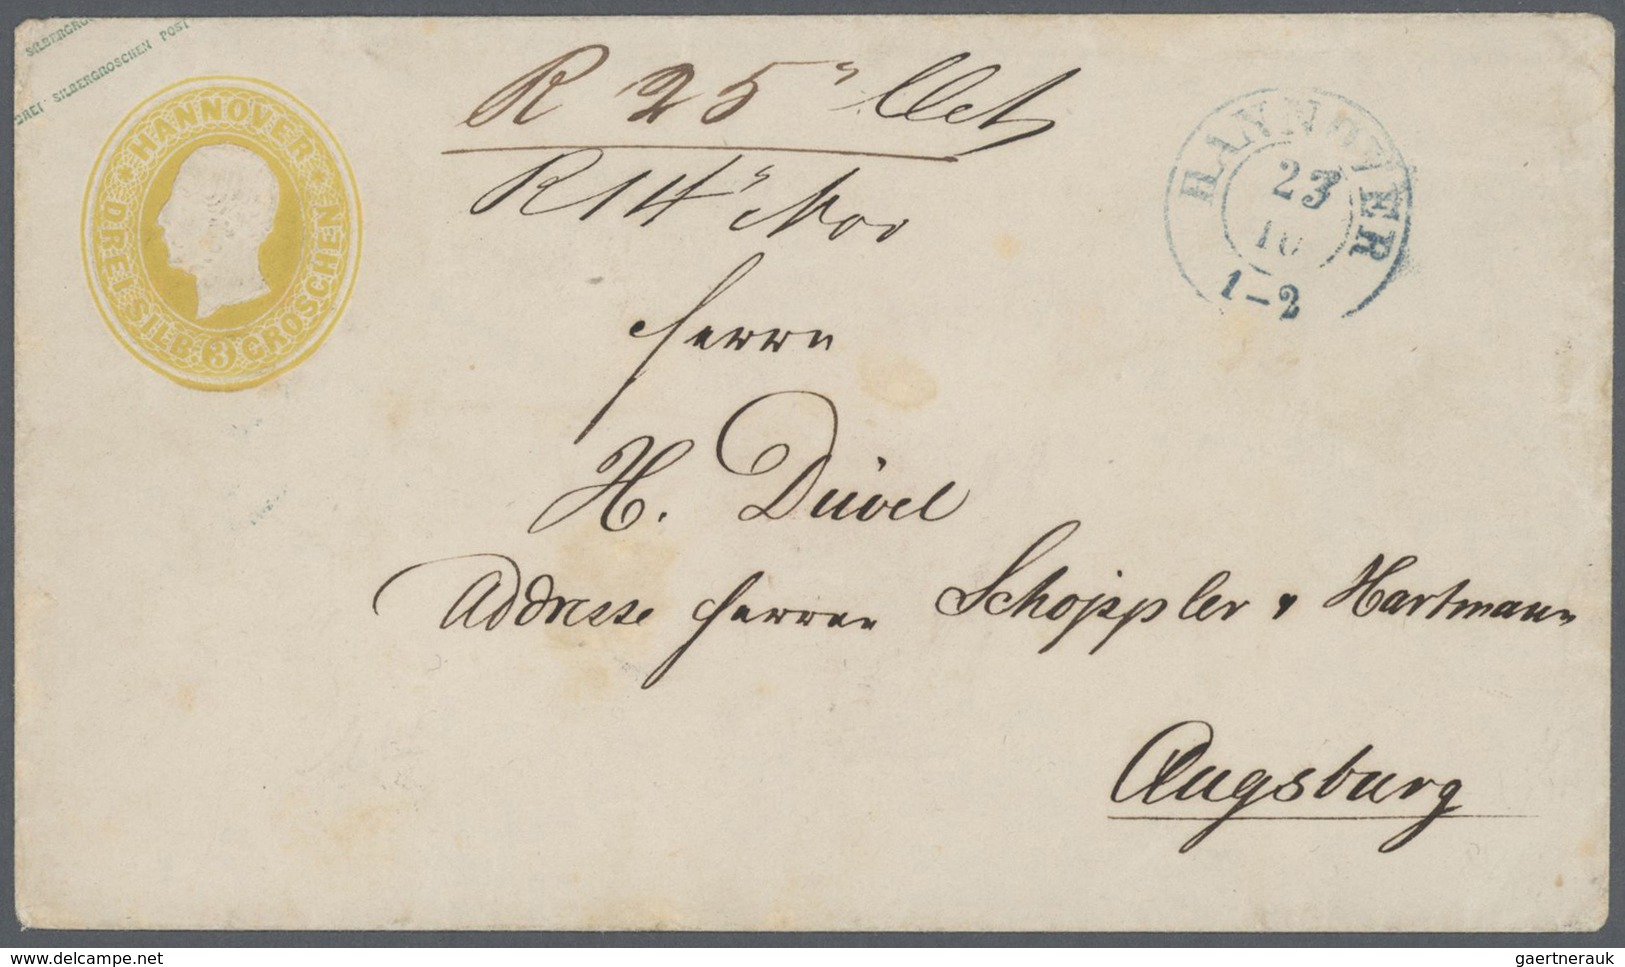 SILBERGRO
DREI SILBERGROSCHEN POST
HANNOVER
DREI SILB. 3 GROSCHEN
R 25 Oct
R 14 Nov
HANNOVER
23
10
1–2
Herrn
H. Düvel
Addresse Herren Schöppler & Hartmann
Augsburg
delcampe.net
gaertnerauk